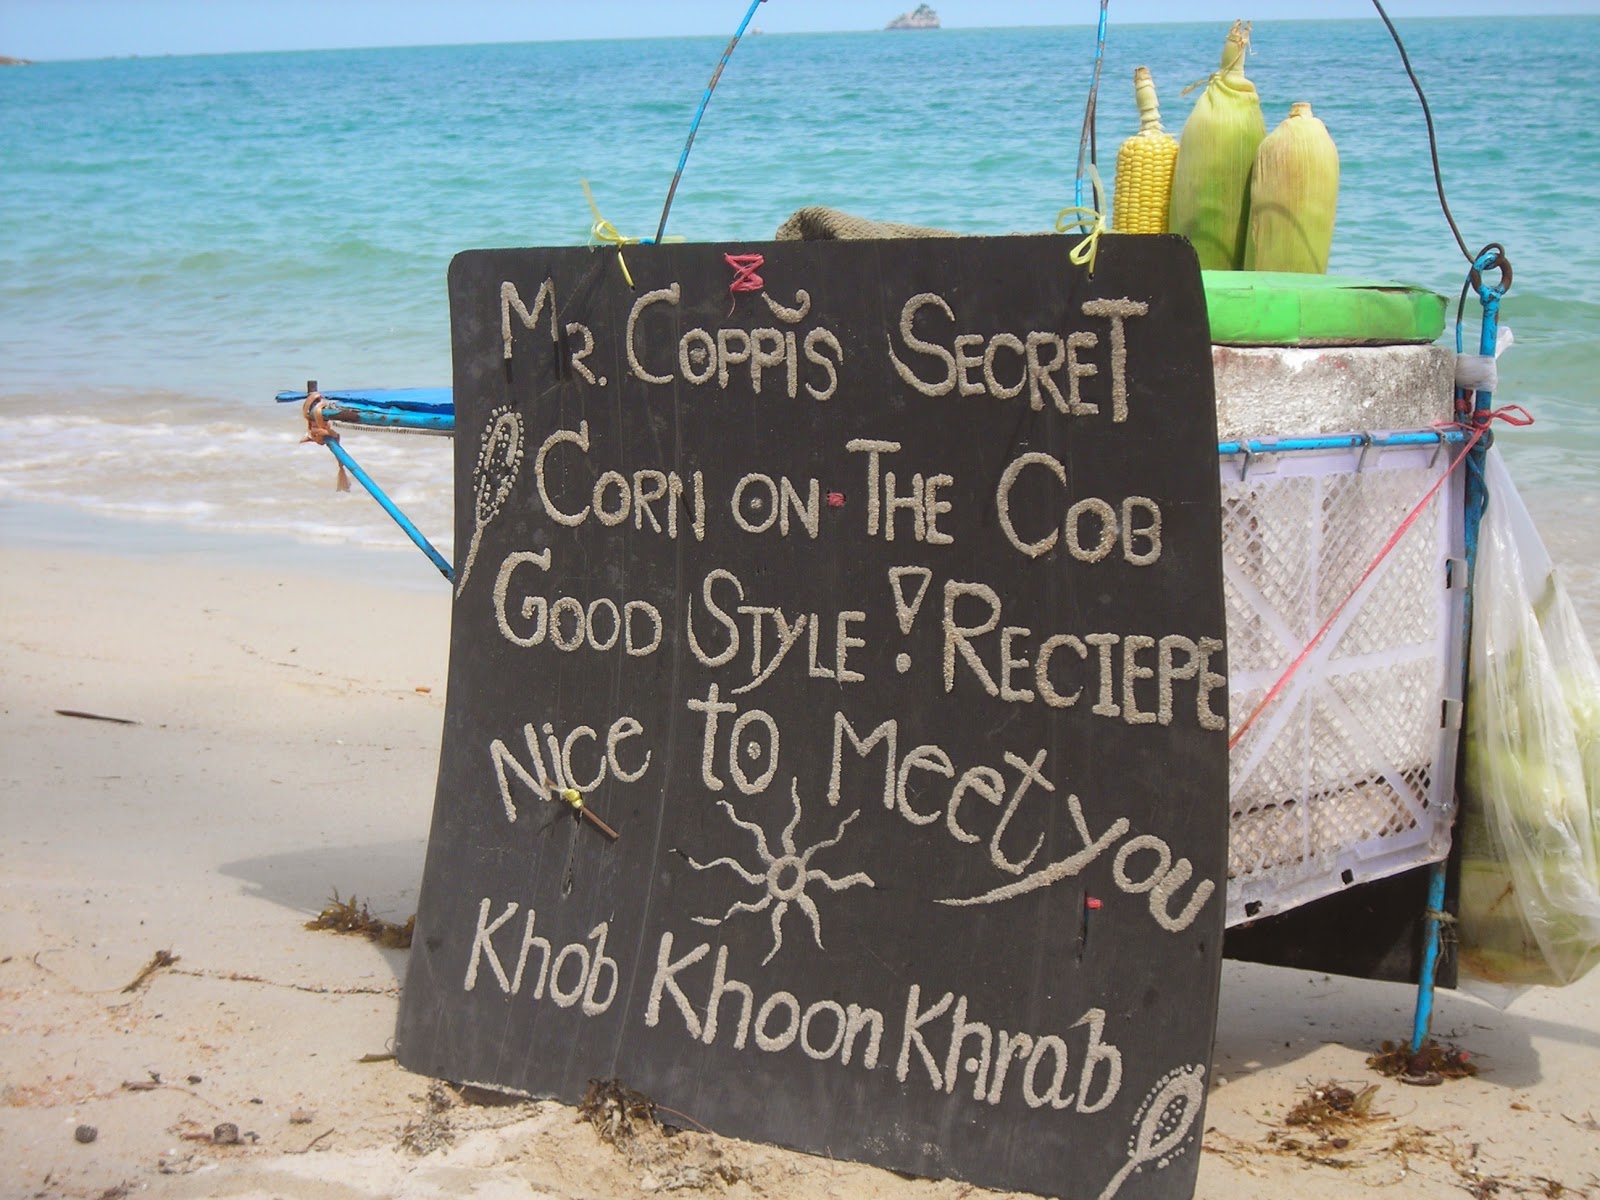 Mr. Coppi's Secret
Corn on The Cob
Good Style! Reciepe
Nice to Meet you
Khob Khoon Khrab